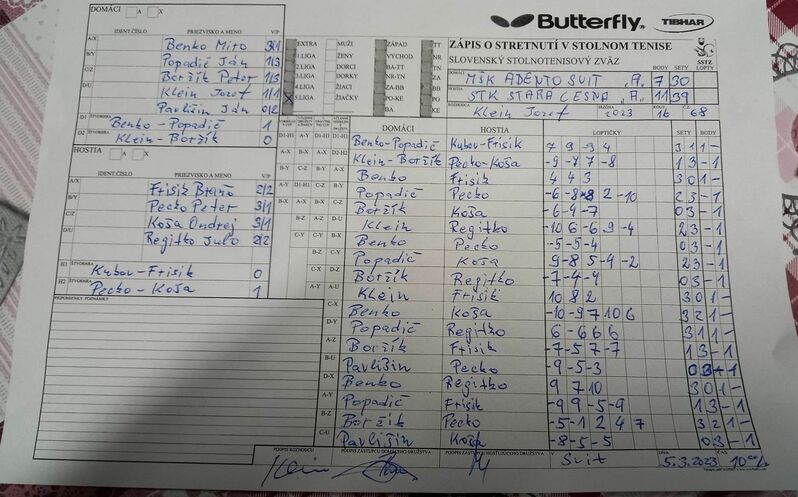 DOMÁCI A X
Butterfly TIBHAR
ZÁPIS O STRETNUTÍ V STOLNOM TENISE
SLOVENSKÝ STOLNOTENISOVÝ ZVÄZ
SSTZ
IDENT ČÍSLO PRIEZVISKO A MENO V/P
A/X Benko Miro 3/1
B/Y Popadič Ján 1/3
C/Z Boržík Peter 1/3
Klein Jozef 1/1
Pavlišin Ján 0/2
D1 ŠTVORHRA Benko-Popadič 1
D2 Klein-Boržík 0
EXTRA MUŽI ZÁPAD TT
1.LIGA ŽENY VÝCHOD NR
2.LIGA DORCI BA-TT TN
3.LIGA DORKY NR-TN ZA
4.LIGA ŽIACI ZA-BB BB
5.LIGA ŽIAČKY PO-KE PO
DOMÁCI BODY SETY LOPTY
MŠK ADENTO SVIT "A" 7 30
HOSTIA STK STARÁ LESNÁ "A" 11 39
Klein Jozef 2023 KOLO 16 Č 68
HOSTIA A X
IDENT ČÍSLO PRIEZVISKO A MENO V/P
A/X Frisik Braňo 2/2
B/Y Pecko Peter 3/1
C/Z Koša Ondrej 3/1
D/U Regitko Julo 2/2
H1 ŠTVORHRA Kubov-Frisik 0
H2 ŠTVORHRA Pecko-Koša 1
PRIPOMIENKY, POZNÁMKY
DOMÁCI HOSTIA LOPTIČKY SETY BODY
Benko-Popadič Kubov-Frisik 7 9 -3 4 3 1 1 -
Klein-Boržík Pecko-Koša -9 -7 7 -8 1 3 - 1
Benko Frisik 4 4 3 3 0 1 -
Popadič Pecko -6 -8 8 2 -10 2 3 - 1
Boržík Koša -6 -4 -7 0 3 - 1
Klein Regitko -10 6 -6 9 -4 2 3 - 1
Benko Pecko -5 -5 -4 0 3 - 1
Popadič Koša 9 -8 5 -9 -2 2 3 - 1
Boržík Regitko -7 -4 -9 0 3 - 1
Klein Frisik 10 8 2 3 0 1 -
C-X Benko Koša -10 -9 7 10 6 3 2 1 -
D-Y Popadič Regitko 6 -6 6 6 3 1 1 -
A-Z Boržík Frisik -7 -5 7 -7 1 3 - 1
B-U Pavlišin Pecko -9 -5 -3 0 3 - 1
D-X Benko Regitko 9 7 10 3 0 1 -
A-Y Popadič Frisik -9 9 -5 -9 1 3 - 1
B-Z Boržík Pecko -5 -1 2 4 7 3 2 1 -
C-U Pavlišin Koša -8 -5 -5 0 3 - 1
PODPIS ROZHODCU PODPIS ZÁSTUPCU DOMÁCEHO DRUŽSTVA PODPIS ZÁSTUPCU HOSŤUJÚCEHO DRUŽSTVA V Svit DŇA 5.3.2023 ČAS